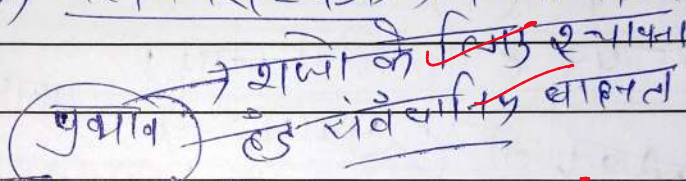 → राज्यो के लिए स्थापना
प्रभाव हेतु संवैधानिक बाध्यता